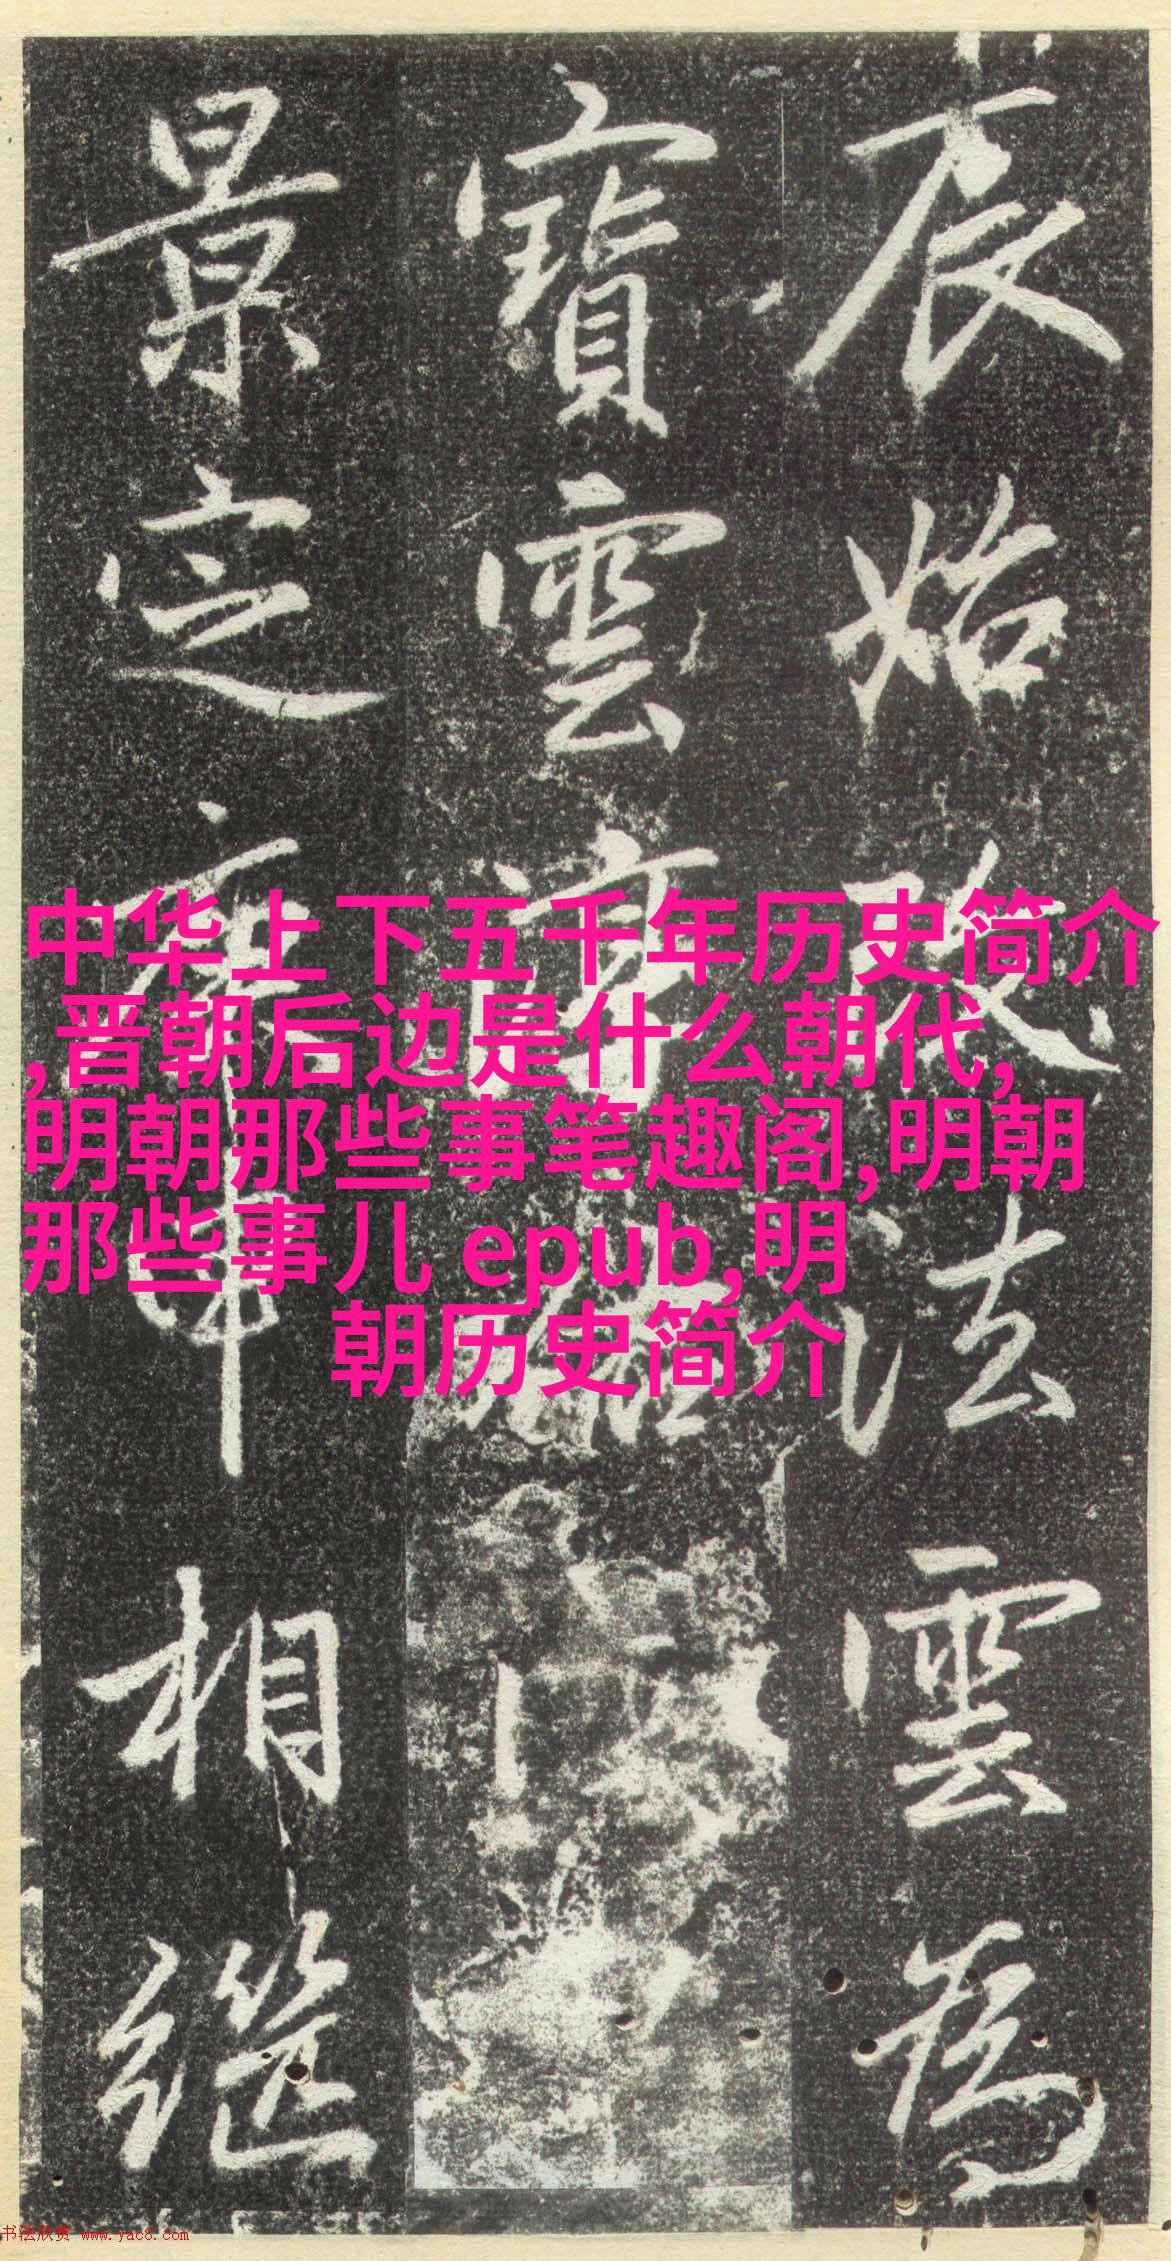 辰始改法雲為
寶雲
景定庚申相繼
中华上下五千年历史简介
,晋朝后边是什么朝代,
明朝那些事笔趣阁,明朝
那些事儿 epub,明
朝历史简介
书法欣赏 www.yac8.com